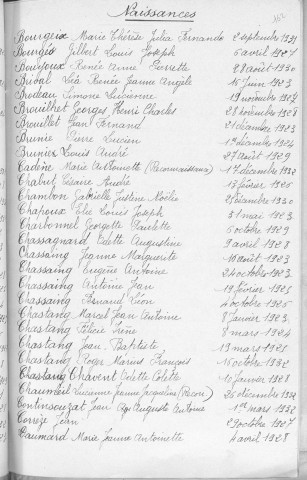 Naissances
Bourgeix Marie Thérèse Julia Fernande 2 septembre
Bourgès Gilbert Louis Joseph 6 avril 1927
Renée Anne Pierrette 28 août 1930
Brival Léa Renée Jeanne Angèle 15 juin 1923
Brodeau Simone Lucienne 19 novembre 1924
Brouilhet Georges Henri Charles 28 novembre 1928
Brouillet Jean Fernand 21 décembre 1923
Brunie Pierre Lucien 1er décembre 1924
Brunies Louis André 27 août 1929
Cadène Marie Antoinette (Reconnaissance) 17 décembre 1932
Chabut André 13 février 1926
Chambon Gabrielle Justine Noëlie décembre 1930
Chapoux Elie Louis Joseph 31 mai 1923
Charbonnel Georgette Paulette 6 octobre 1929
Chassagnard Odette Augustine 9 avril 1928
Chassaing Jeanne Marguerite 10 août 1923
Chassaing Eugène Antoine 24 octobre 1923
Chassaing Antoine Jean 19 février 1925
Chassaing Fernand Léon 4 octobre 1926
Chastang Marcel Jean Antoine 8 janvier 1923
Chastang Félicie Irène 8 mars 1924
Chastang Jean Baptiste 19 mars 1925
Chastang Roger Marius François 16 octobre
Chastang Chavent Odette Colette 10 janvier 1928
Chaumeil Suzanne Jeanne Jacqueline 26 décembre
Continsouzat Jean Auguste Antoine 1er mars 1932
Corrèze Jean 29 octobre 1927
Coumard Marie Jeanne Antoinette 4 avril 1928